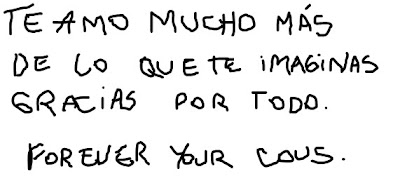 TE AMO MUCHO MÁS
DE LO QUE TE IMAGINAS
GRACIAS POR TODO.
FOREVER YOUR COUS.